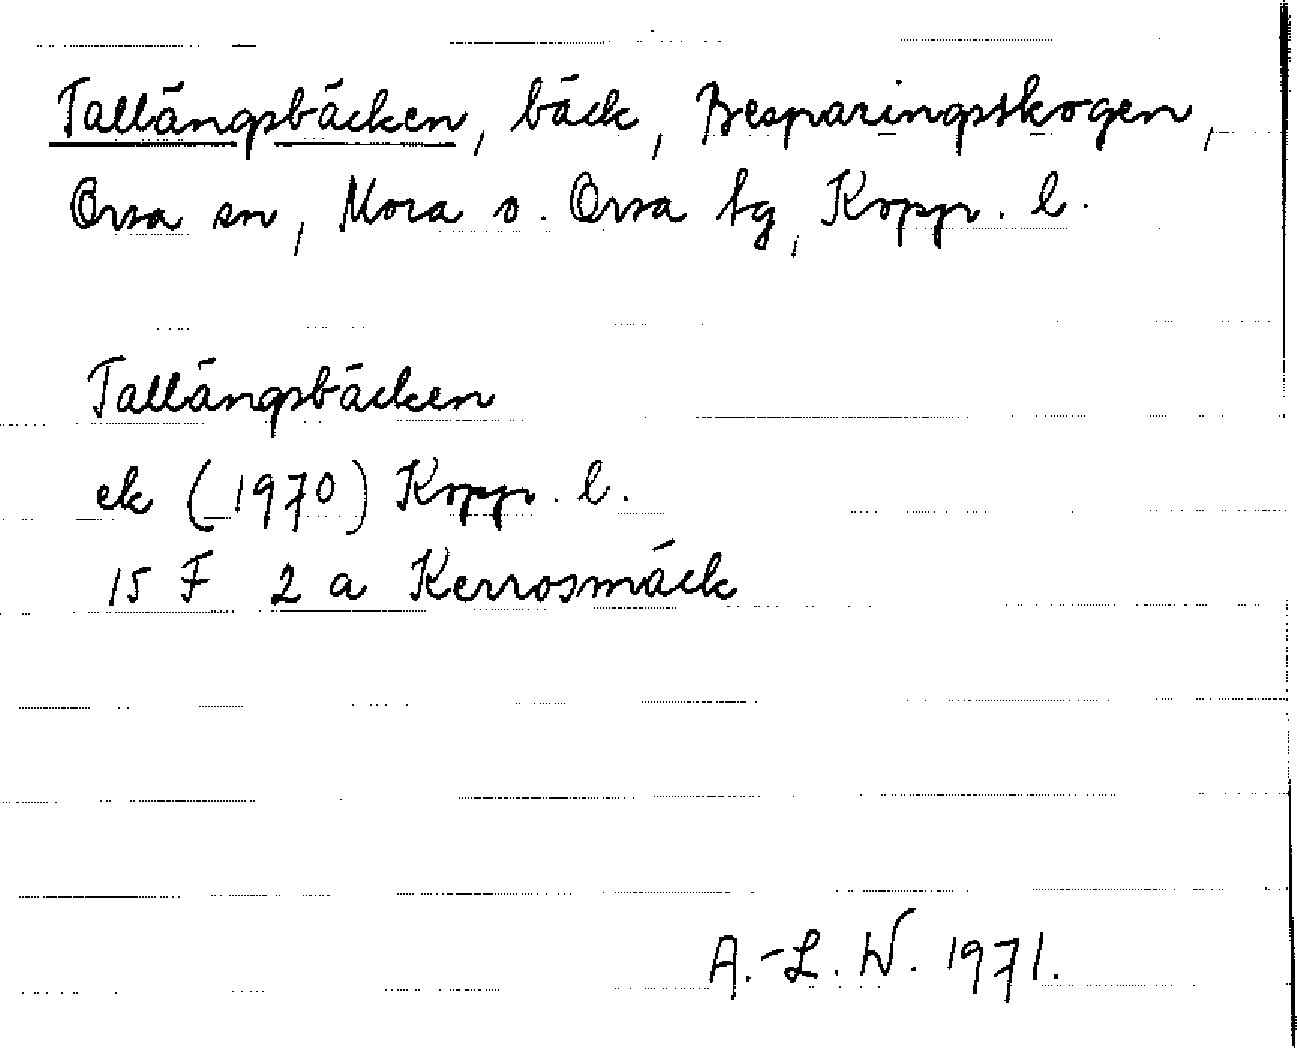 Tallängsbäcken, bäck, Besparingsskogen,
Orsa sn, Mora o. Orsa tg, Kopp. l.
Tallängsbäcken
ek (1970) Kopp. l.
15 F 2 a Kerrosmäck
A.-L. W. 1971.